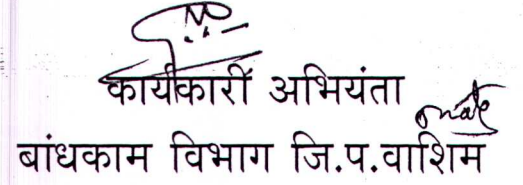 कार्यकारी अभियंता
बांधकाम विभाग जि.प.वाशिम